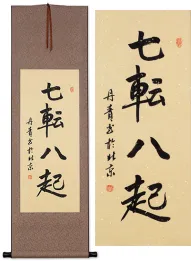 七転八起
丹青書於北京
七転八起
丹青書於北京